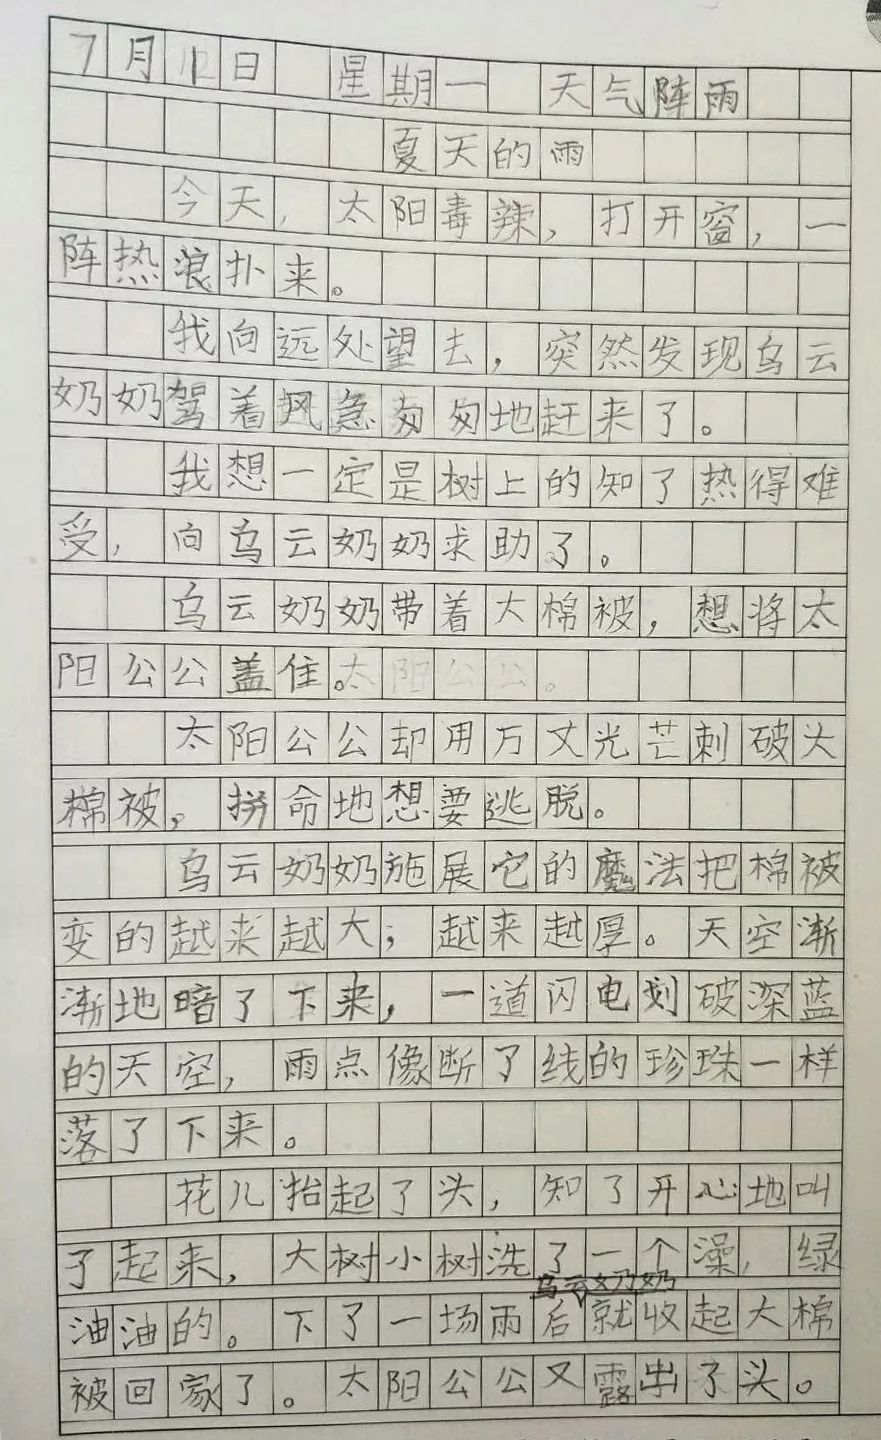 7月12日 星期一 天气阵雨
夏天的雨
今天,太阳毒辣,打开窗,一
阵热浪扑来。
我向远处望去,突然发现乌云
奶奶驾着风急匆匆地赶来了。
我想一定是树上的知了热得难
受,向乌云奶奶求助了。
乌云奶奶带着大棉被,想将太
阳公公盖住。
太阳公公却用万丈光芒刺破大
棉被,拼命地想要逃脱。
乌云奶奶施展它的魔法把棉被
变的越来越大;越来越厚。天空渐
渐地暗了下来,一道闪电划破深蓝
的天空,雨点像断了线的珍珠一样
落了下来。
花儿抬起了头,知了开心地叫
了起来,大树小树洗了一个澡,绿
乌云奶奶
油油的。下了一场雨后就收起大棉
被回家了。太阳公公又露出了头。